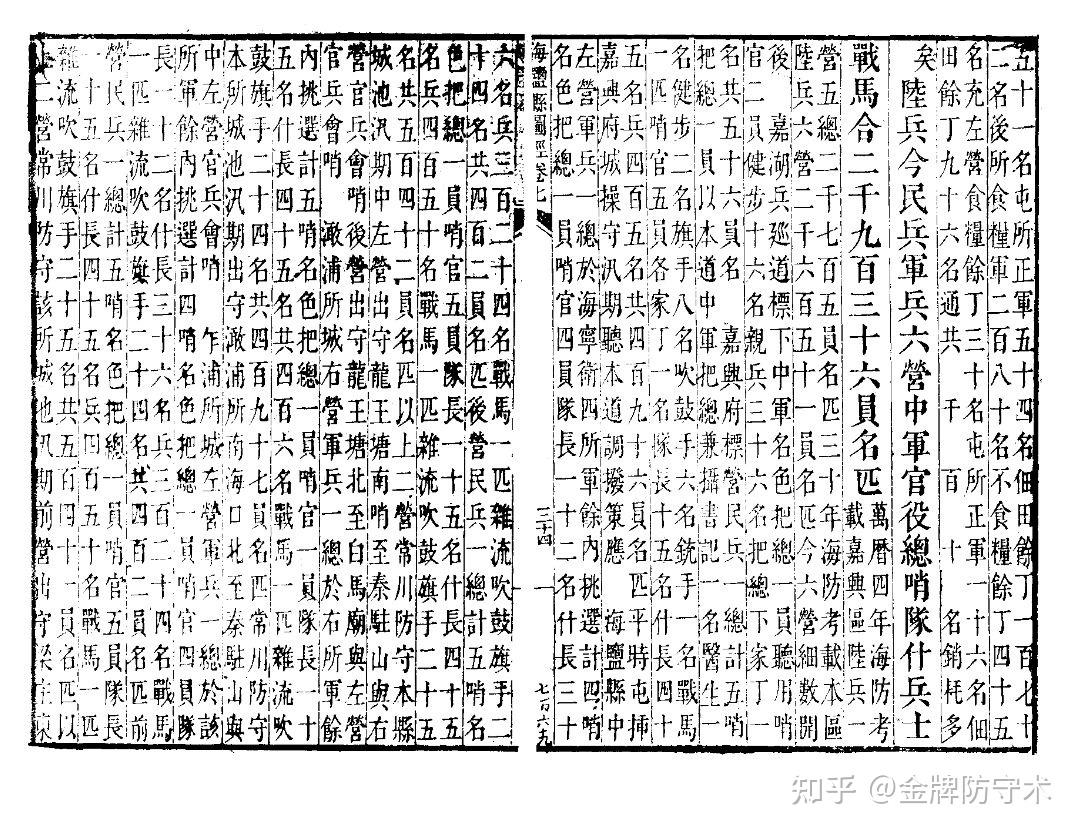 五十一名屯所正軍五十四名佃田餘丁一百七十
二名後所食糧軍二百八十名不食糧餘丁四十五
名充左營食糧餘丁三十名屯所正軍一十六名佃
田餘丁九十六名通共　千　百　十　名銷耗多
矣　陸兵今民兵軍兵六營中軍官役總哨隊什兵士
戰馬合二千九百三十六員名匹
萬曆四年海防考
載嘉興區陸兵一
營五總二千七百五員名匹三十年海防考載本區
陸兵六營二千六百五十一員名匹今六營細數開
後　嘉湖兵巡道標下中軍名色把總一員聽用哨
官二員健步十六名親兵三十六名把總下家丁一
名共五十六員名　嘉興府標營民兵一總計五哨
把總一員以本道中軍把總兼攝書記一名醫生一
名健步二名旗手八名吹鼓手六名銃手一名戰馬
一匹哨官五員各家丁一名隊長十五名什長四十
五名兵四百五名共四百九十六員名匹平時屯挿
嘉興府城操守汛期聽本道調撥策應　海鹽縣中
左營軍兵一總於海寧衛四所軍餘內挑選計四哨
名色把總一員哨官四員隊長一十二名什長三十
海鹽縣圖經卷七
三十四
七百六九
六名兵三百二十四名戰馬一匹雜流吹鼓旗手二
十四名共四百二員名匹後營民兵一總計五哨名
色把總一員哨官五員隊長一十五名什長四十五
名兵四百五十名戰馬一匹雜流吹鼓旗手二十五
名共五百四十二員名匹以上二營常川防守本縣
城池汛期中左營出守龍王塘南哨至秦駐山與右
營官兵會哨後營出守龍王塘北至白馬廟與左營
官兵會哨　澉浦所城右營軍兵一總於右所軍餘
內挑選計五哨名色把總一員哨官一員隊長一十
五名什長四十五名共四百六名戰馬一匹雜流吹
鼓旗手二十四名共四百九十七員名匹常川防守
本所城池汛期出守澉浦所南海口北至秦駐山與
中左營官兵會哨　乍浦所城左營軍兵一總於該
所軍餘內挑選計四哨名色把總一員哨官四員隊
長一十二名什長三十六名兵三百二十四名戰馬
一匹雜流吹鼓旗手二十四名共四百二員名匹前
營民兵一總計五哨名色把總一員哨官五員隊長
一十五名什長四十五名兵四百五十名戰馬一匹
雜流吹鼓旗手二十五名共五百四十一員名匹以
上二營常川防守該所城池汛期前營出守梁庄東
知乎 @金牌防守术